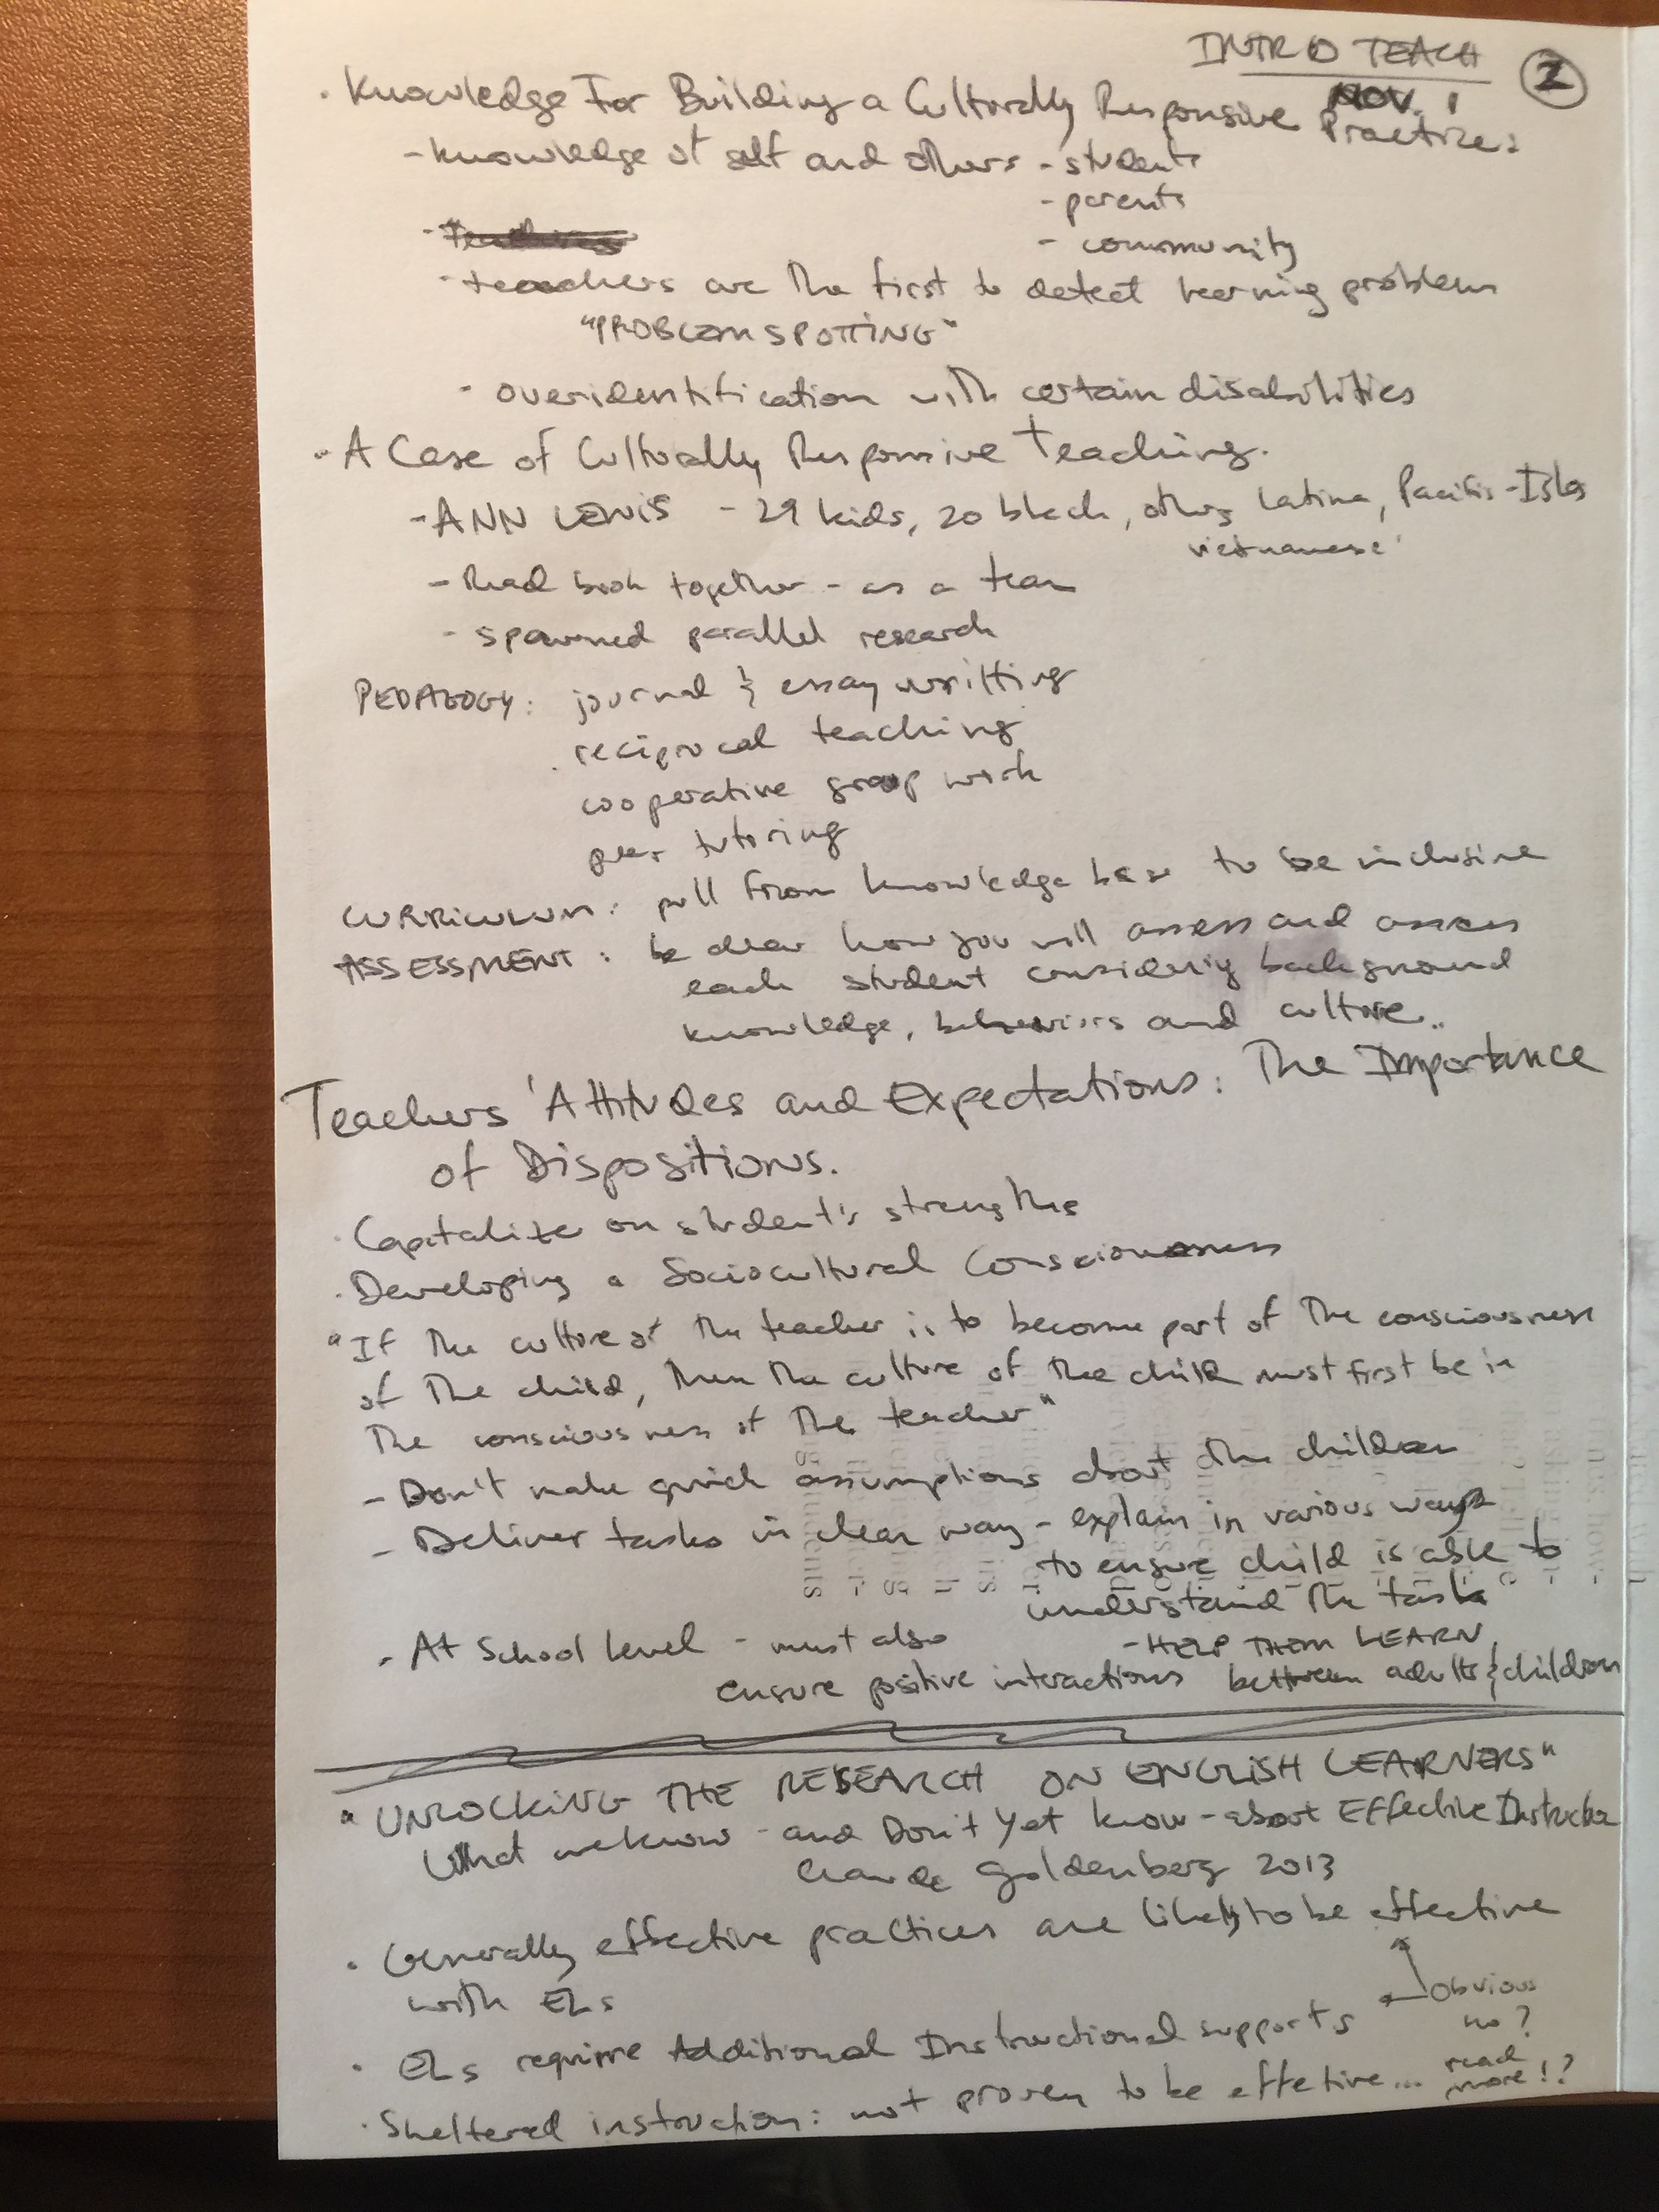 INTRO TEACH ②
NOV. 1
· Knowledge For Building a Culturally Responsive Practice:
- knowledge of self and others - students
- parents
- community
- teachers are the first to detect learning problems
"PROBLEM SPOTTING"
- overidentification with certain disabilities
· A Case of Culturally Responsive Teaching.
- ANN LEWIS - 29 kids, 20 black, others Latina, Pacific-Isles
vietnamese
- Read book together - as a team
- spawned parallel research
PEDAGOGY: journal & essay writting
reciprocal teaching
cooperative group work
peer tutoring
CURRICULUM: pull from knowledge base to be inclusive
ASSESSMENT: be clear how you will assess and assess
each student considering background
knowledge, behaviors and culture..
Teachers' Attitudes and Expectations: The Importance
of Dispositions.
· Capitalize on student's strengths
· Developing a Sociocultural Consciousness
"If the culture of the teacher is to become part of the consciousness
of the child, then the culture of the child must first be in
the consciousness of the teacher"
- Don't make quick assumptions about the children
- Deliver tasks in clear way - explain in various ways
to ensure child is able to
understand the task
- HELP THEM LEARN
- At School level - must also
ensure positive interactions between adults & children
"UNLOCKING THE RESEARCH ON ENGLISH LEARNERS"
What we know - and Don't Yet know - about Effective Instruction
Claude Goldenberg 2013
· Generally effective practices are likely to be effective
with ELs
Obvious
no?
· ELs require Additional Instructional supports
· Sheltered instruction: not proven to be effetive... read
more!?